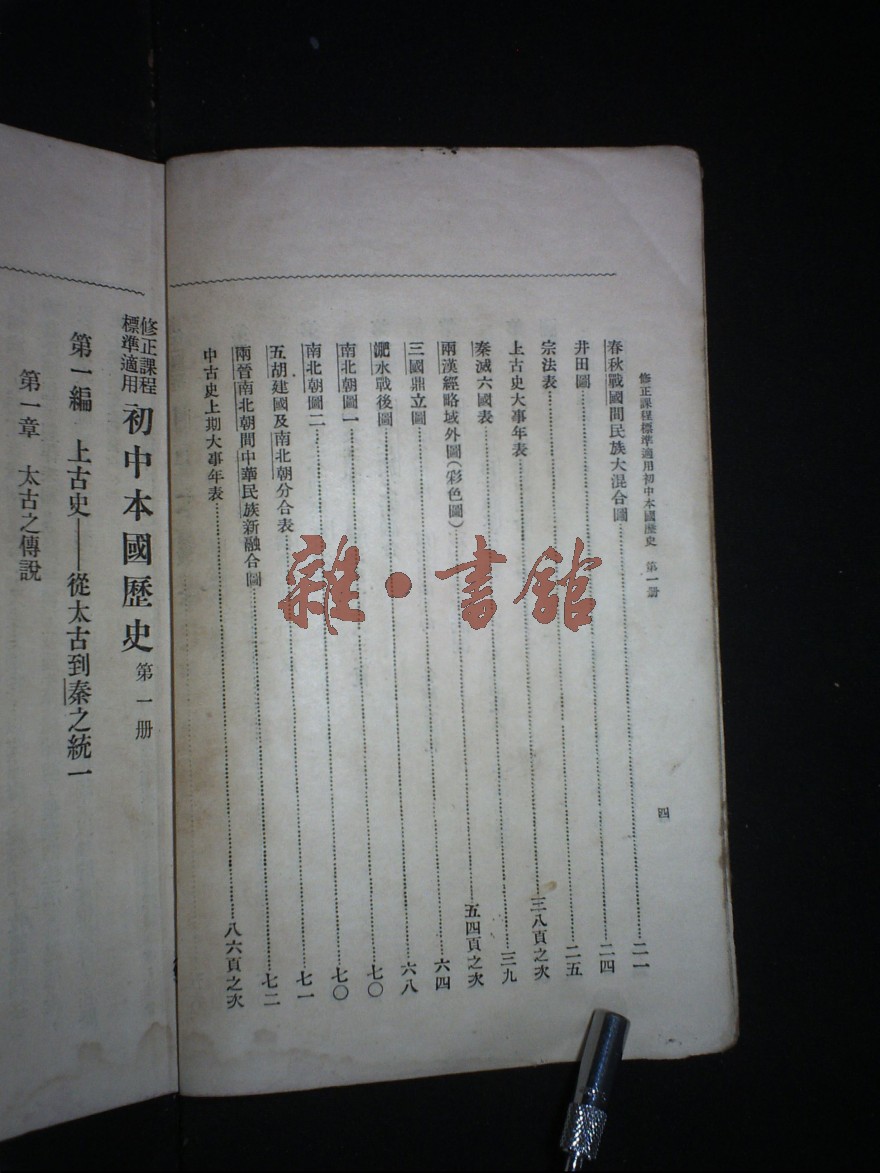 修正課程標準適用初中本國歷史 第一册 四
春秋戰國間民族大混合圖……二一
井田圖……二四
宗法表……二五
上古史大事年表……三八頁之次
秦滅六國表……三九
兩漢經略域外圖(彩色圖)……五四頁之次
三國鼎立圖……六四
淝水戰後圖……六八
南北朝圖一……七〇
南北朝圖二……七〇
五胡建國及南北朝分合表……七一
兩晉南北朝間中華民族新融合圖……七二
中古史上期大事年表……八六頁之次
修正課程標準適用 初中本國歷史 第一册
第一編 上古史——從太古到秦之統一
第一章 太古之傳說
雜·書館